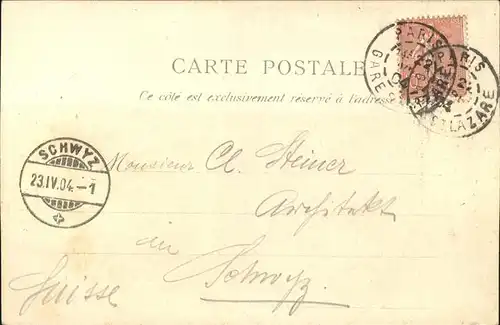 CARTE POSTALE
Ce côté est exclusivement réservé à l'adresse
PARIS
GARE
PARIS
GARE ST LAZARE
SCHWYZ
23.IV.04.-1
Monsieur Cl. Steiner
Architekt
in
Schwyz.
Suisse